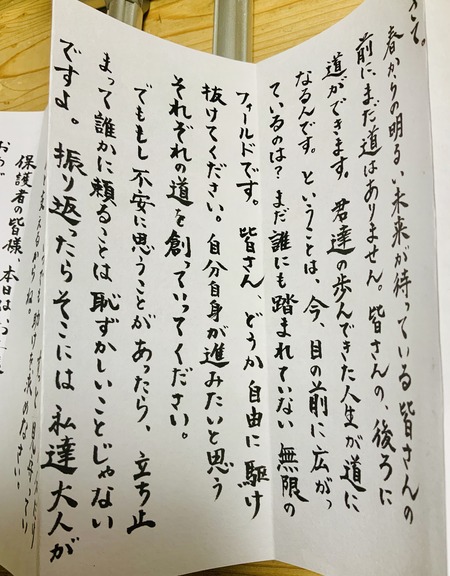 さて。
春からの明るい未来が待っている皆さんの
前にまだ道はありません。皆さんの、後ろに
道ができます。君達の歩んできた人生が道に
なるんです。ということは、今、目の前に広がっ
ているのは?まだ誰にも踏まれていない無限の
フィールドです。皆さん、どうか自由に駆け
抜けてください。自分自身が進みたいと思う
それぞれの道を創っていってください。
でももし不安に思うことがあったら、立ち止
まって誰かに頼ることは恥ずかしいことじゃない
ですよ。振り返ったらそこには私達大人が
保護者の皆様 本日は